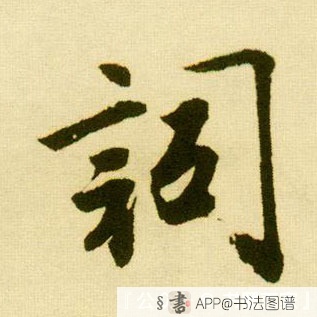 詞
§書 APP@书法图谱